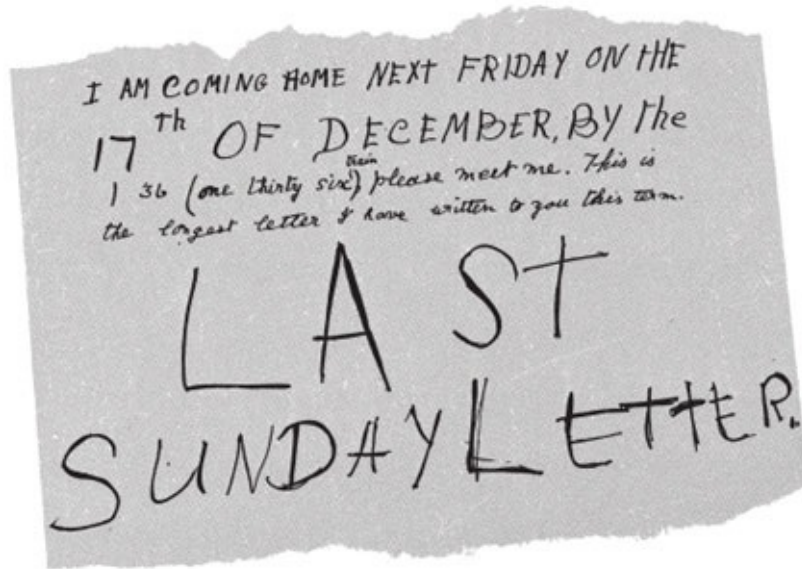 I AM COMING HOME NEXT FRIDAY ON THE
17 Th OF DECEMBER, BY the
train
1 36 (one thirty six) please meet me. This is
the longest letter I have written to you this term.
LAST
SUNDAY LETTER.